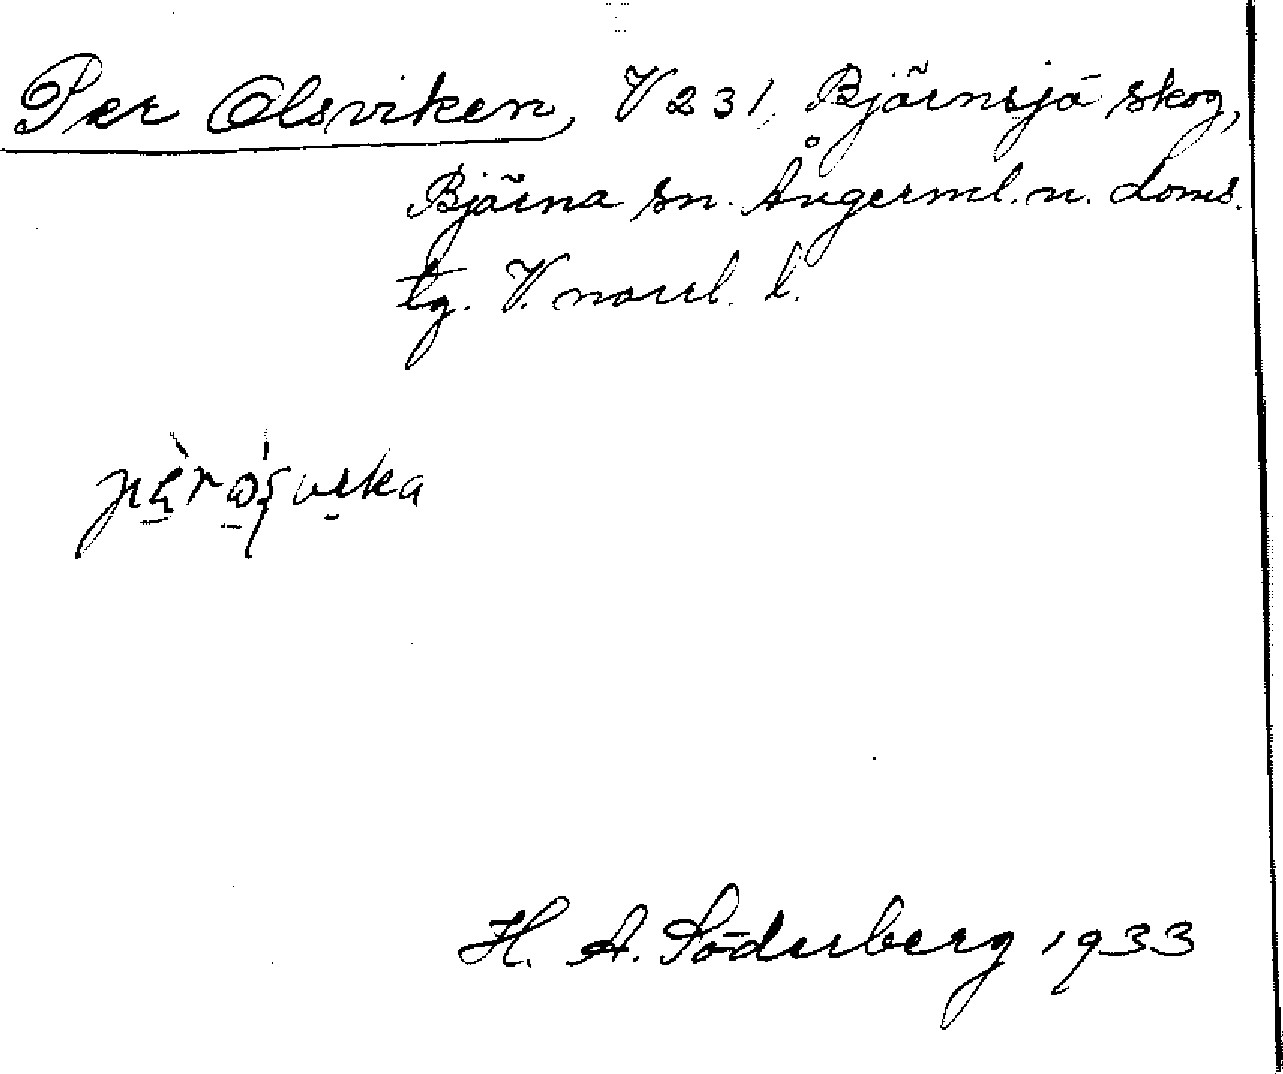 Per Olsviken, V 231, Björnsjö skog,
Björna sn. Ångerml. n. Doms.
tg. V. norrl. l.
H. A. Söderberg 1933